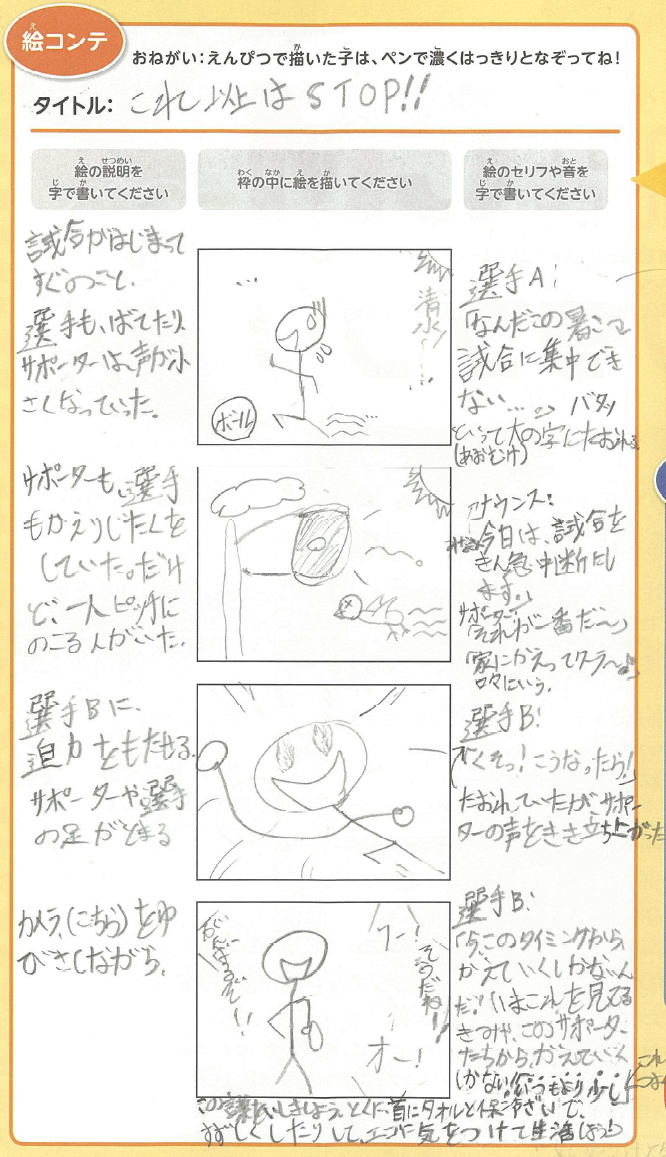 絵コンテ
おねがい：えんぴつで描いた子は、ペンで濃くはっきりとなぞってね！
タイトル： これ以上はSTOP!!
絵の説明を
字で書いてください
枠の中に絵を描いてください
絵のセリフや音を
字で書いてください
試合がはじまって
すぐのこと、
選手も、ばてたり、
サポーターは、声が小
さくなっていった。
清水
ボール
選手A：
「なんだこの暑さで
試合に集中でき
ない…」 バタッ
といって大の字にたおれる
(あおむけ)
サポーターも、選手
もかえりじたくを
していた。だけ
ど、一人ピッチに
のこる人がいた。
アナウンス：
今日は、試合を
きん急中断にし
ます。」
サポーター
「それが一番だ〜」
「家にかえってクーラー〜♪」
口々にいう。
選手Bに、
迫力をもたせる。
サポーターや選手
の足がとまる
選手B：
「くそっ！こうなったら！」
たおれていたがサポー
ターの声をきき立ち上がった
カメラ、(こちら)をゆ
びさしながら、
がんばるぞー!!
ワー！
そうだね!!
オー！
選手B：
「今、このタイミングから、
かえていくしかないん
だ！いまこれを見てる
きみや、このサポーター
たちから、かえていく
しかない！いつもより少し
首にタオルと保冷ざいで、
すずしくしたりして、エコに気をつけて生活しよう！